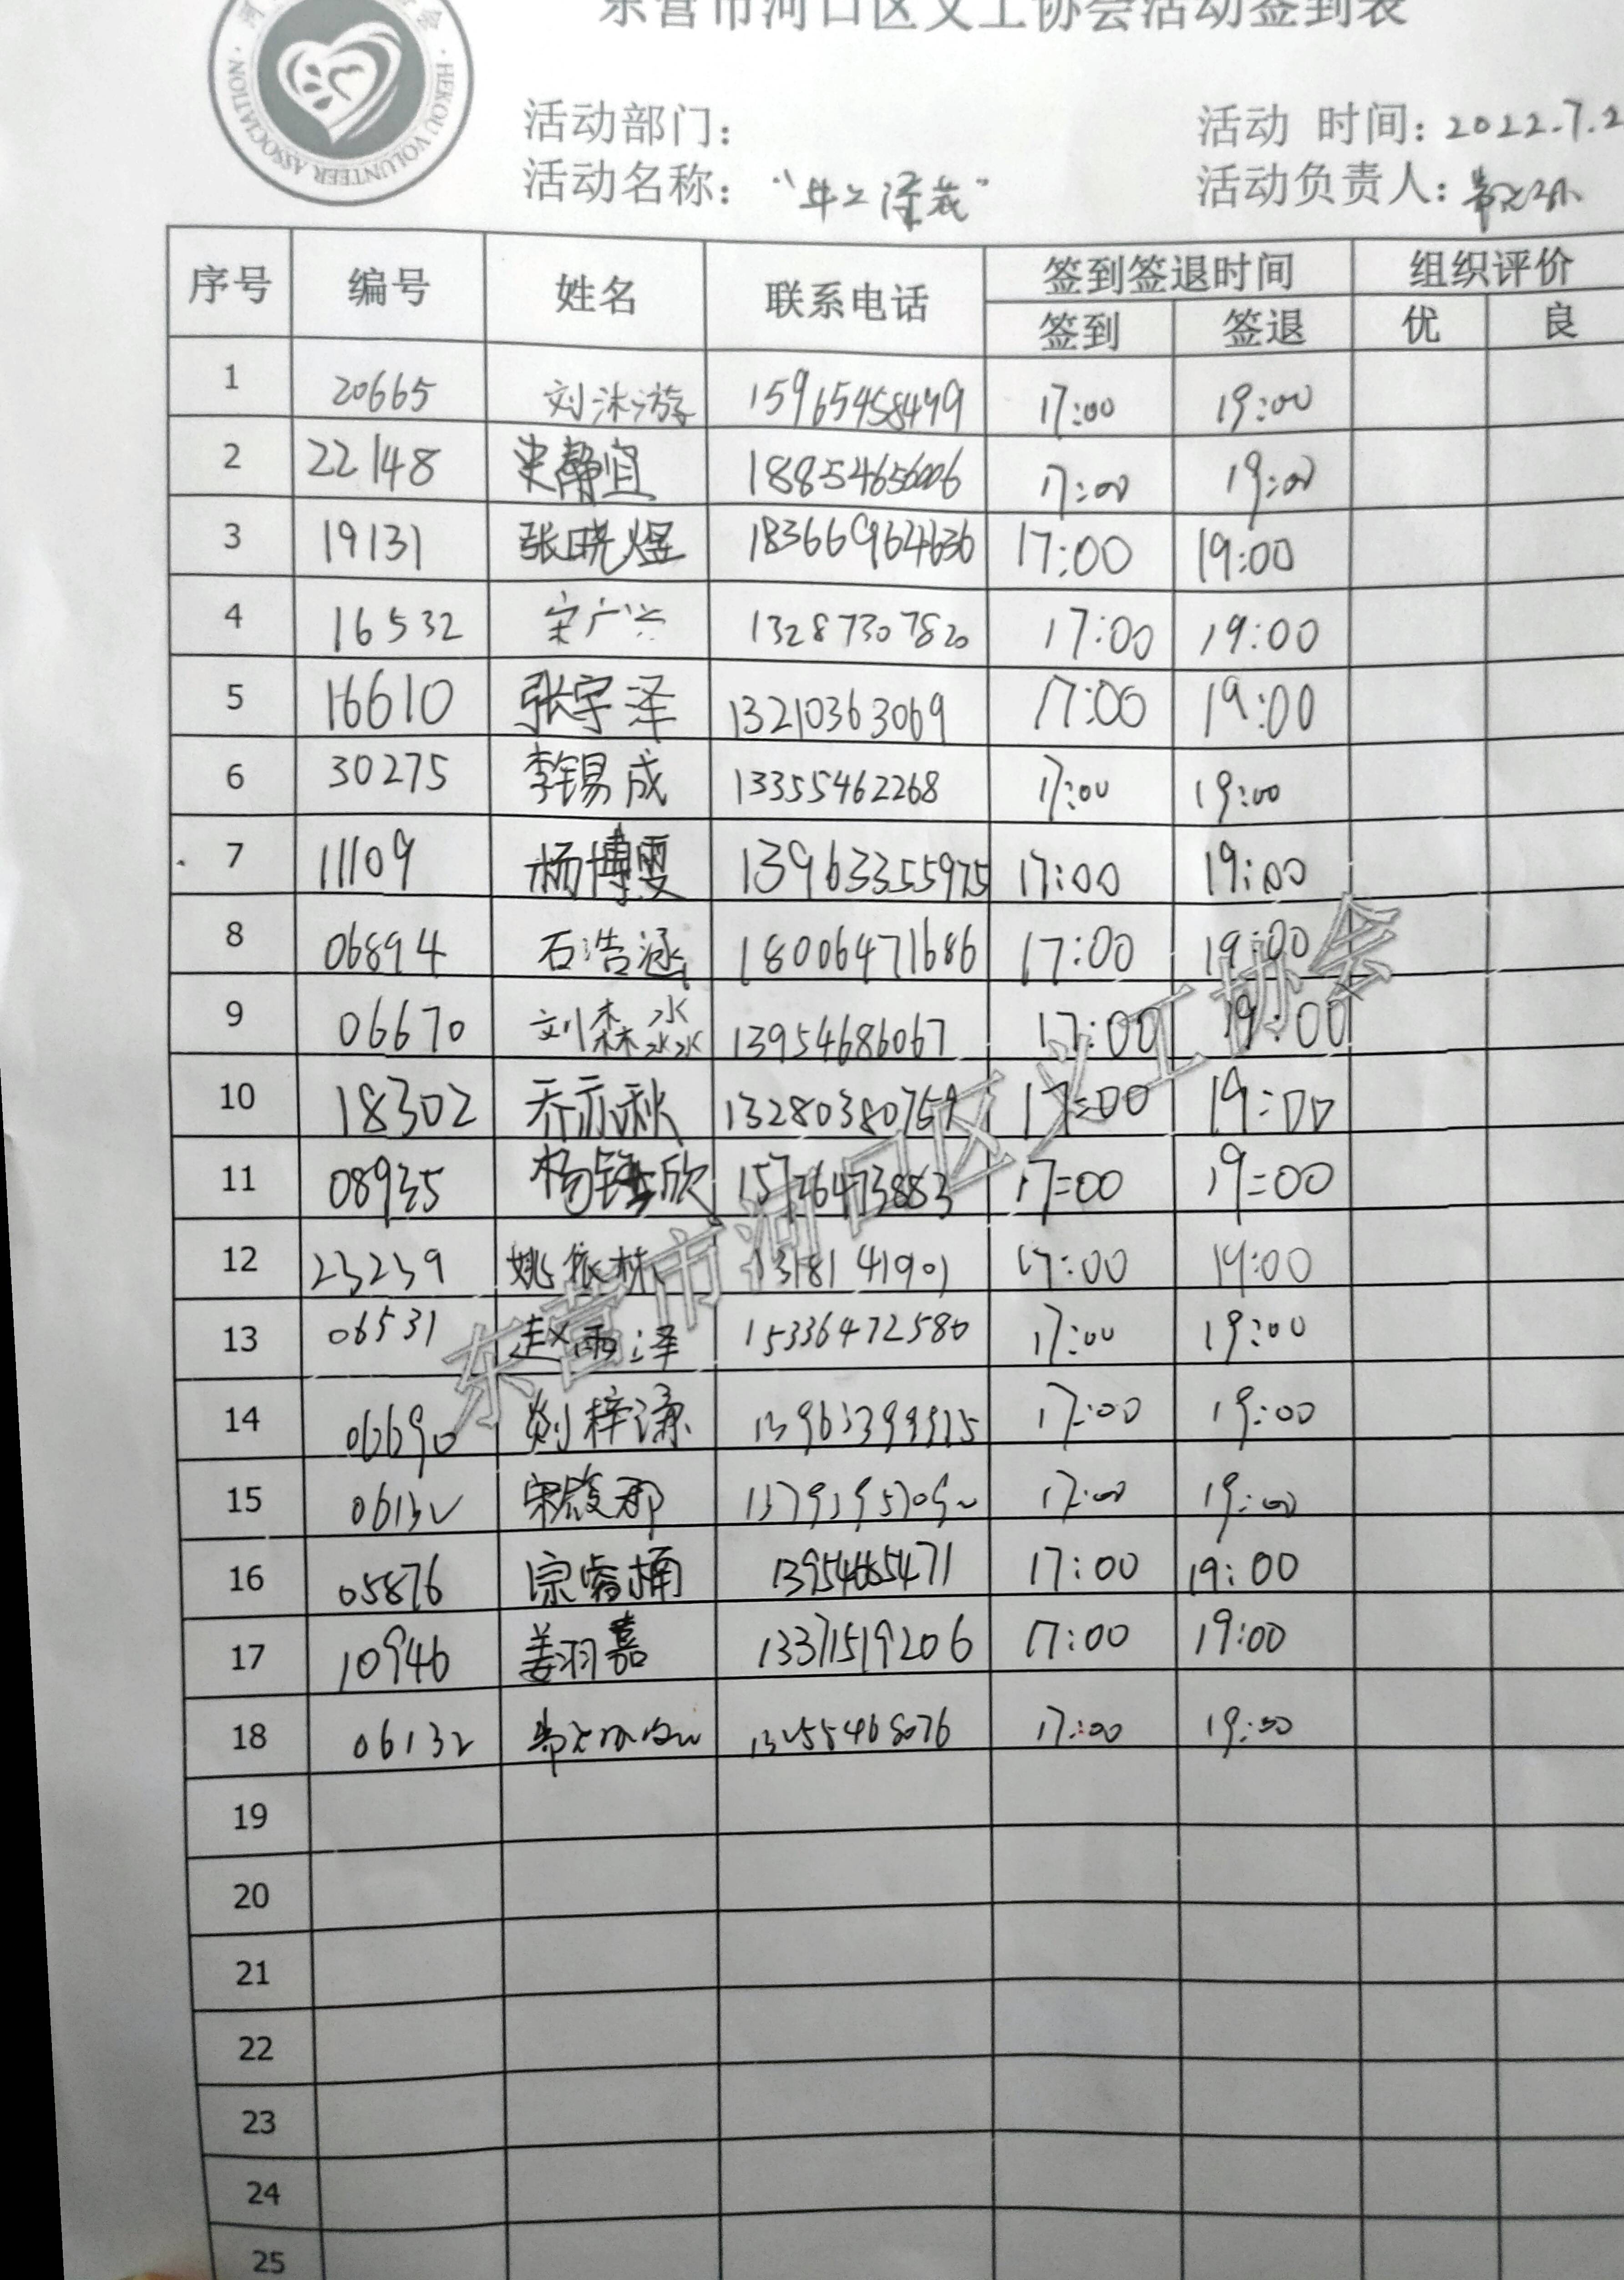 东营市河口区义工协会活动签到表
HEKOU VOLUNTEER ASSOCIATION
活动部门： 活动 时间：2022.7.2
活动名称： 活动负责人：
序号 编号 姓名 联系电话 签到签退时间 组织评价
签到 签退 优 良
1 20665 刘沐游 15965458479 17:00 19:00
2 22148 史静宜 18854656006 17:00 19:00
3 19131 张晓煜 18366964636 17:00 19:00
4 16532 宋广兴 13287307820 17:00 19:00
5 16610 张宇泽 13210363069 17:00 19:00
6 30275 李锡成 13355462268 17:00 19:00
7 11109 杨博雯 13963355975 17:00 19:00
8 06894 石浩涵 18006471686 17:00 19:00
9 06670 刘森淼 13954686067 17:00 19:00
10 18302 乔亦秋 13280380759 17:00 19:00
11 08935 15726473883 17:00 19:00
12 23239 姚依林 13181419901 17:00 19:00
13 06531 赵雨泽 15336472580 17:00 19:00
14 06690 刘梓谦 13963399975 17:00 19:00
15 06132 17:00 19:00
16 05876 宗睿楠 13954665471 17:00 19:00
17 10946 姜羽嘉 13371519206 17:00 19:00
18 06132 13255468076 17:00 19:00
19
20
21
22
23
24
25
东营市河口区义工协会